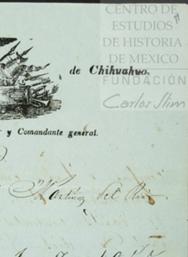 CENTRO DE
ESTUDIOS
DE HISTORIA
DE MEXICO
FUNDACIÓN
Carlos Slim
de Chihuahua.
y Comandante general.
Martinez del Rio